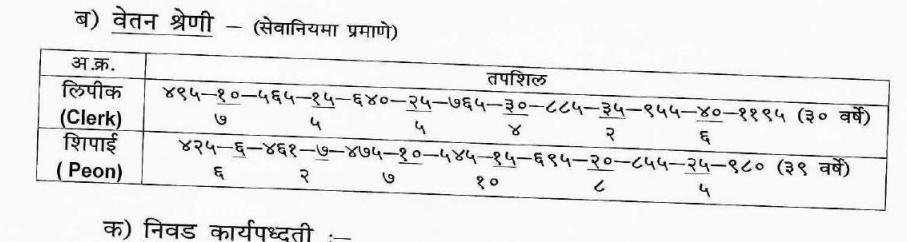 ब) वेतन श्रेणी – (सेवानियमा प्रमाणे)
अ.क्र. तपशिल
लिपीक (Clerk) ४९५–१०–५६५–१५–६४०–२५–७६५–३०–८८५–३५–९५५–४०–११९५ (३० वर्षे)
७ ५ ५ ४ २ ६
शिपाई ( Peon) ४२५–६–४६१–७–४७५–१०–५४५–१५–६९५–२०–८५५–२५–९८० (३९ वर्षे)
६ २ ७ १० ८ ५
क) निवड कार्यपध्दती :–